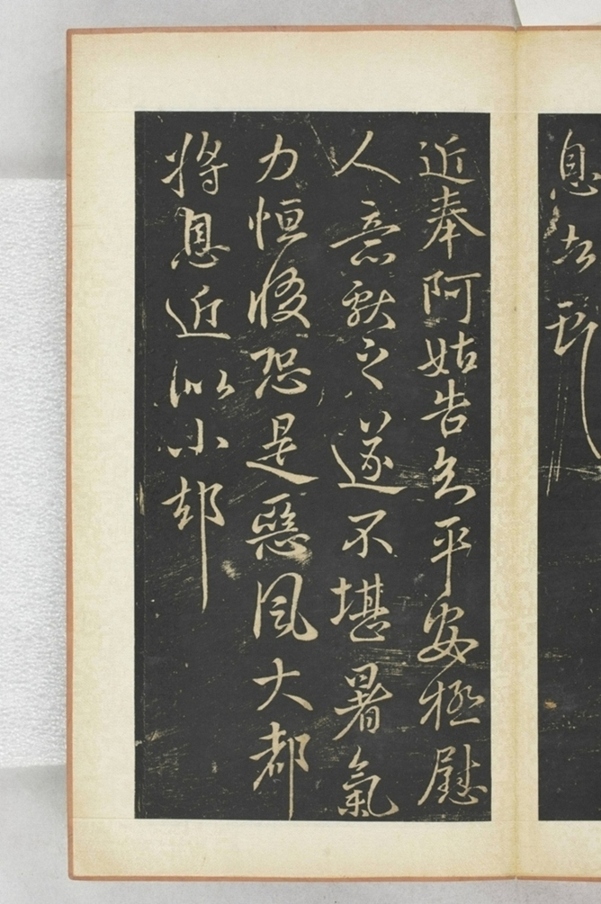 息
近奉阿姑告知平安極慰
人意獻之遂不堪暑氣
力恒惙恐是惡風大都
將息近似小却